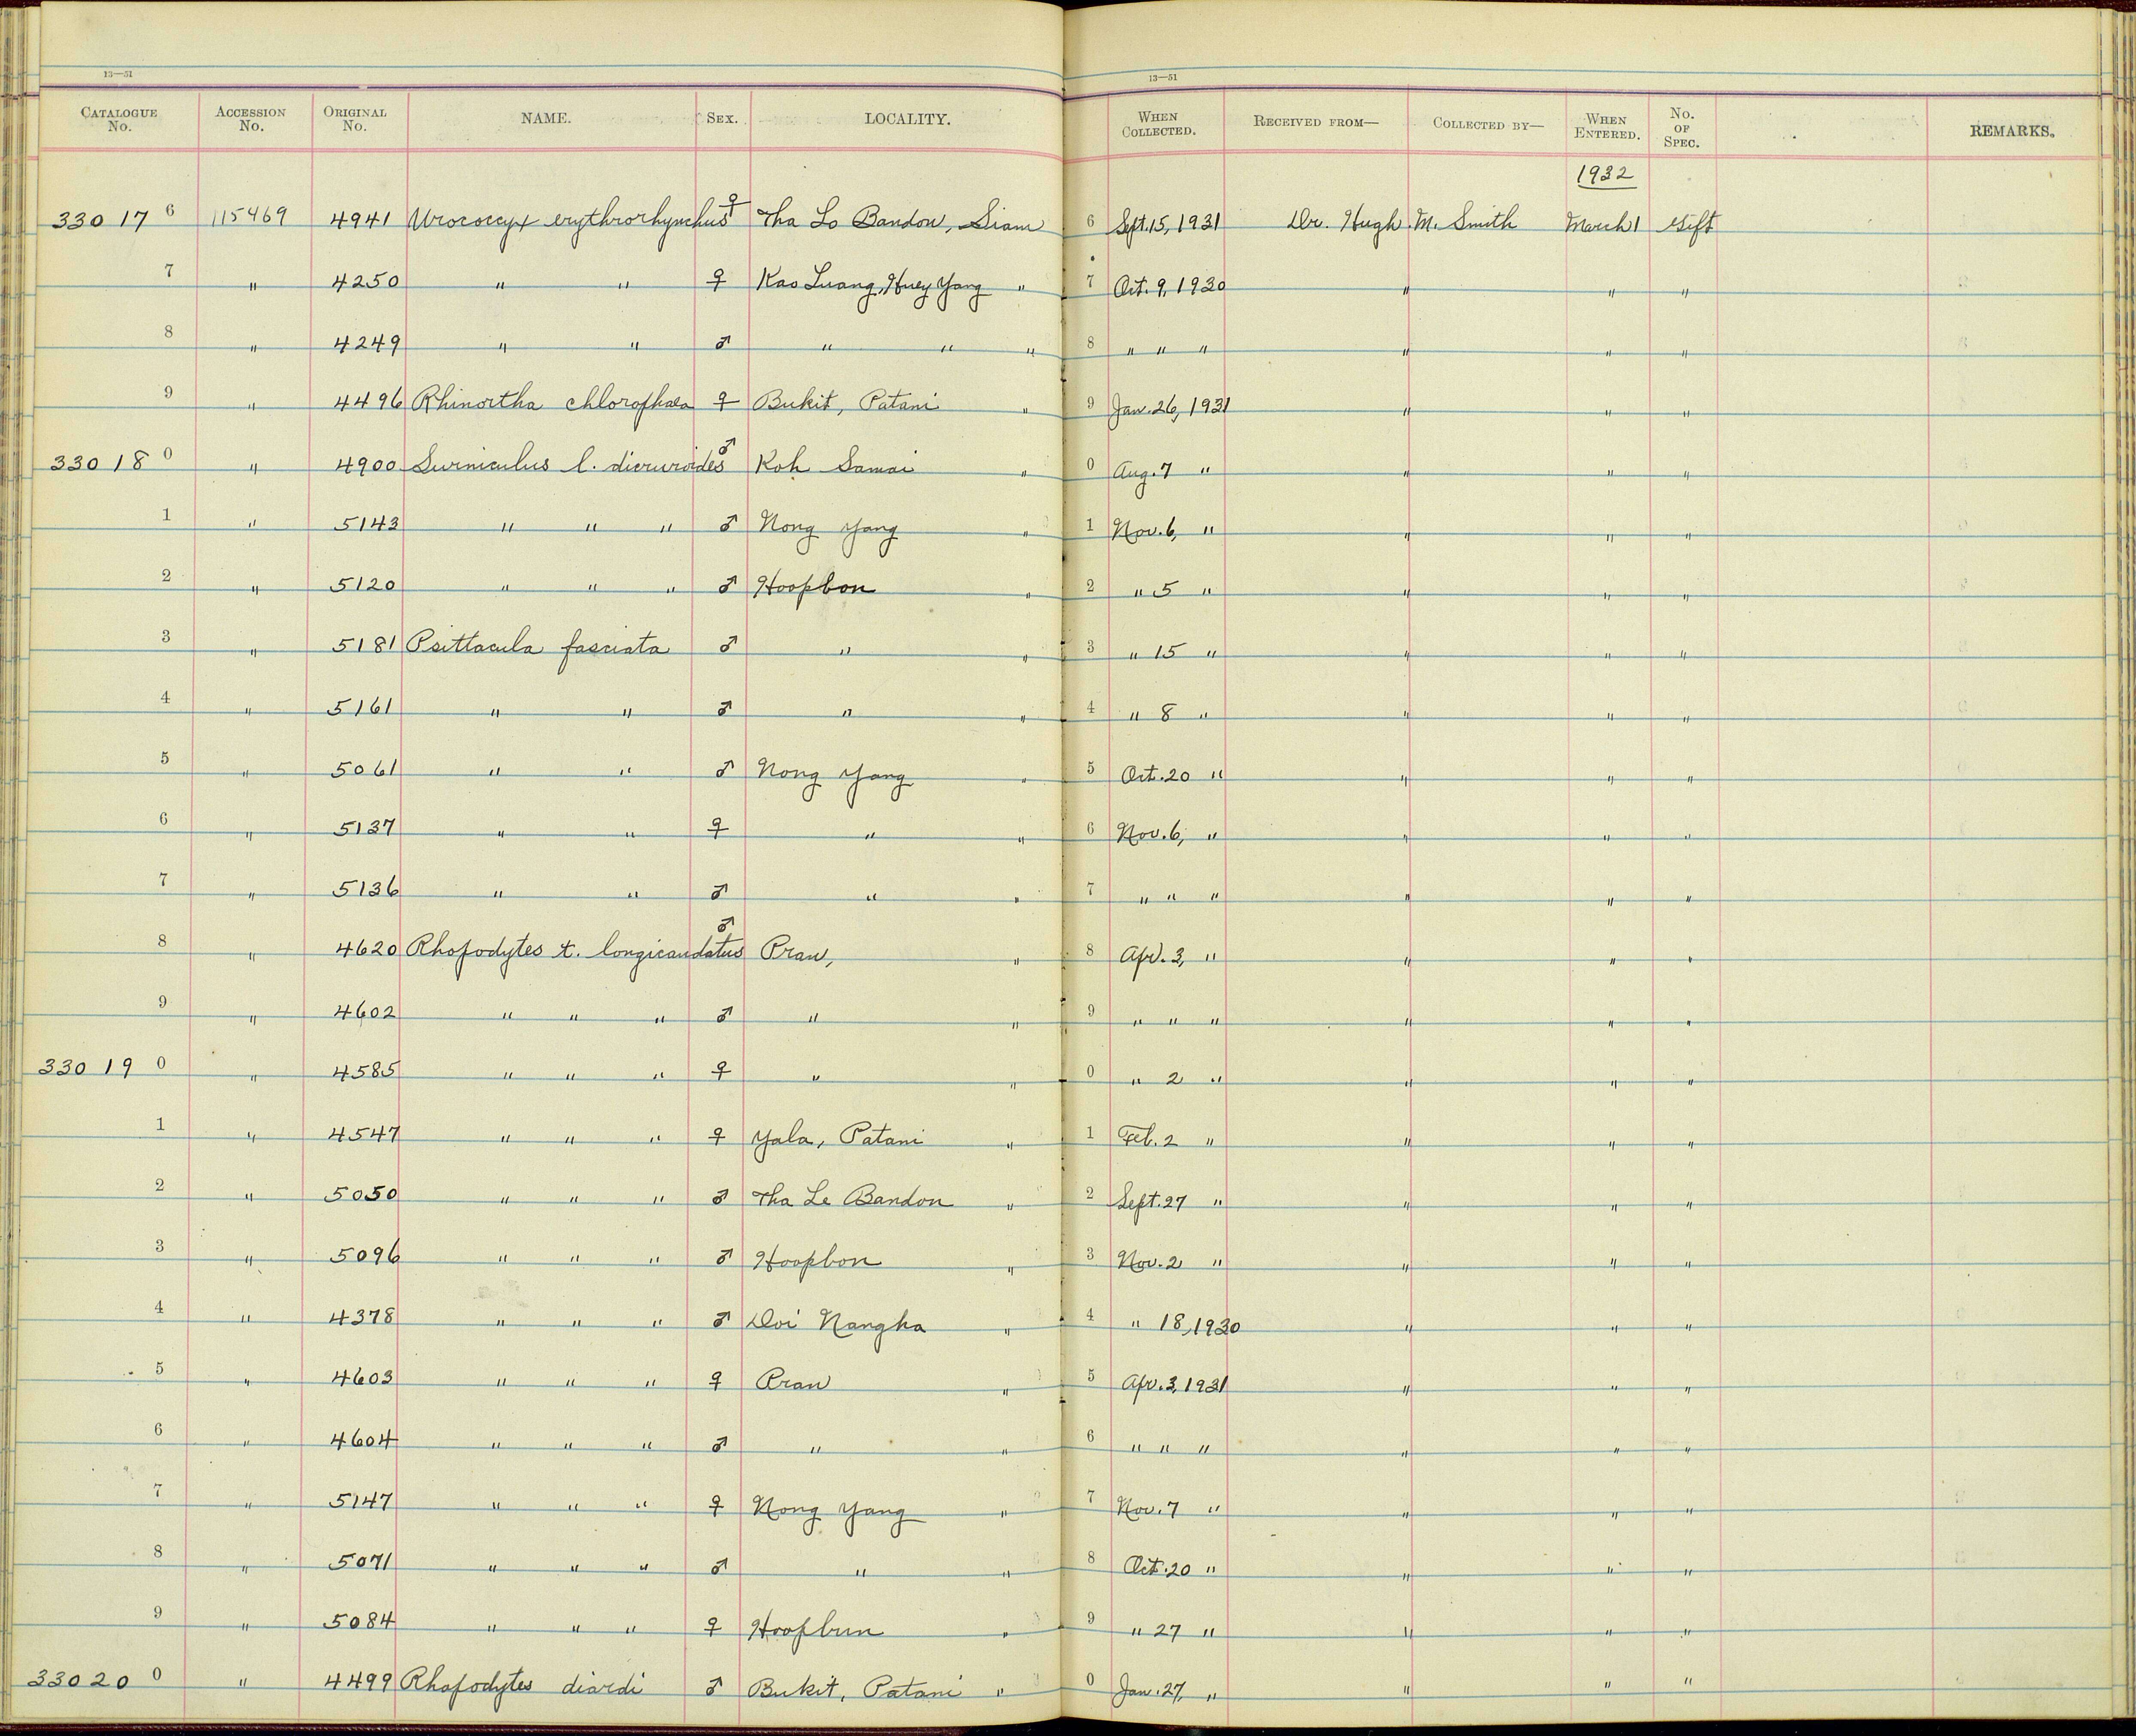 13—51 13—51
CATALOGUE No. ACCESSION No. ORIGINAL No. NAME. SEX. LOCALITY. WHEN COLLECTED. RECEIVED FROM— COLLECTED BY— WHEN ENTERED. No. OF SPEC. REMARKS.
1932
330 17 6 115469 4941 Urococcyx erythrorhynchus ♀ Tha Lo Bandon, Siam 6 Sept. 15, 1931 Dr. Hugh M. Smith March 1 Gift
7 " 4250 " " ♀ Kao Luang, Huey Yang " 7 Oct. 9, 1930 " " "
8 " 4249 " " ♂ " " " 8 " " " " " "
9 " 4496 Rhinortha chlorophaea ♀ Bukit, Patani " 9 Jan. 26, 1931 " " "
330 18 0 " 4900 Surniculus l. dicruroides ♂ Koh Samai " 0 Aug. 7 " " " "
1 " 5143 " " " ♂ Nong Yang " 1 Nov. 6, " " " "
2 " 5120 " " " ♂ Hoopbon " 2 " 5 " " " "
3 " 5181 Psittacula fasciata ♂ " " 3 " 15 " " " "
4 " 5161 " " ♂ " " 4 " 8 " " " "
5 " 5061 " " ♂ Nong Yang " 5 Oct. 20 " " " "
6 " 5137 " " ♀ " " 6 Nov. 6, " " " "
7 " 5136 " " ♂ " " 7 " " " " " "
8 " 4620 Rhopodytes t. longicaudatus ♂ Pran, " 8 Apr. 3, " " " "
9 " 4602 " " " ♂ " " 9 " " " " " "
330 19 0 " 4585 " " " ♀ " " 0 " 2 " " " "
1 " 4547 " " " ♀ Yala, Patani " 1 Feb. 2 " " " "
2 " 5050 " " " ♂ Tha Le Bandon " 2 Sept. 27 " " " "
3 " 5096 " " " ♂ Hoopbon " 3 Nov. 2 " " " "
4 " 4378 " " " ♂ Doi Nangha " 4 " 18, 1930 " " "
5 " 4603 " " " ♀ Pran " 5 Apr. 3, 1931 " " "
6 " 4604 " " " ♂ " " 6 " " " " " "
7 " 5147 " " " ♀ Nong Yang " 7 Nov. 7 " " " "
8 " 5071 " " " ♂ " " 8 Oct. 20 " " " "
9 " 5084 " " " ♀ Hoopbun " 9 " 27 " " " "
330 20 0 " 4499 Rhopodytes diardi ♂ Bukit, Patani " 0 Jan. 27, " " " "